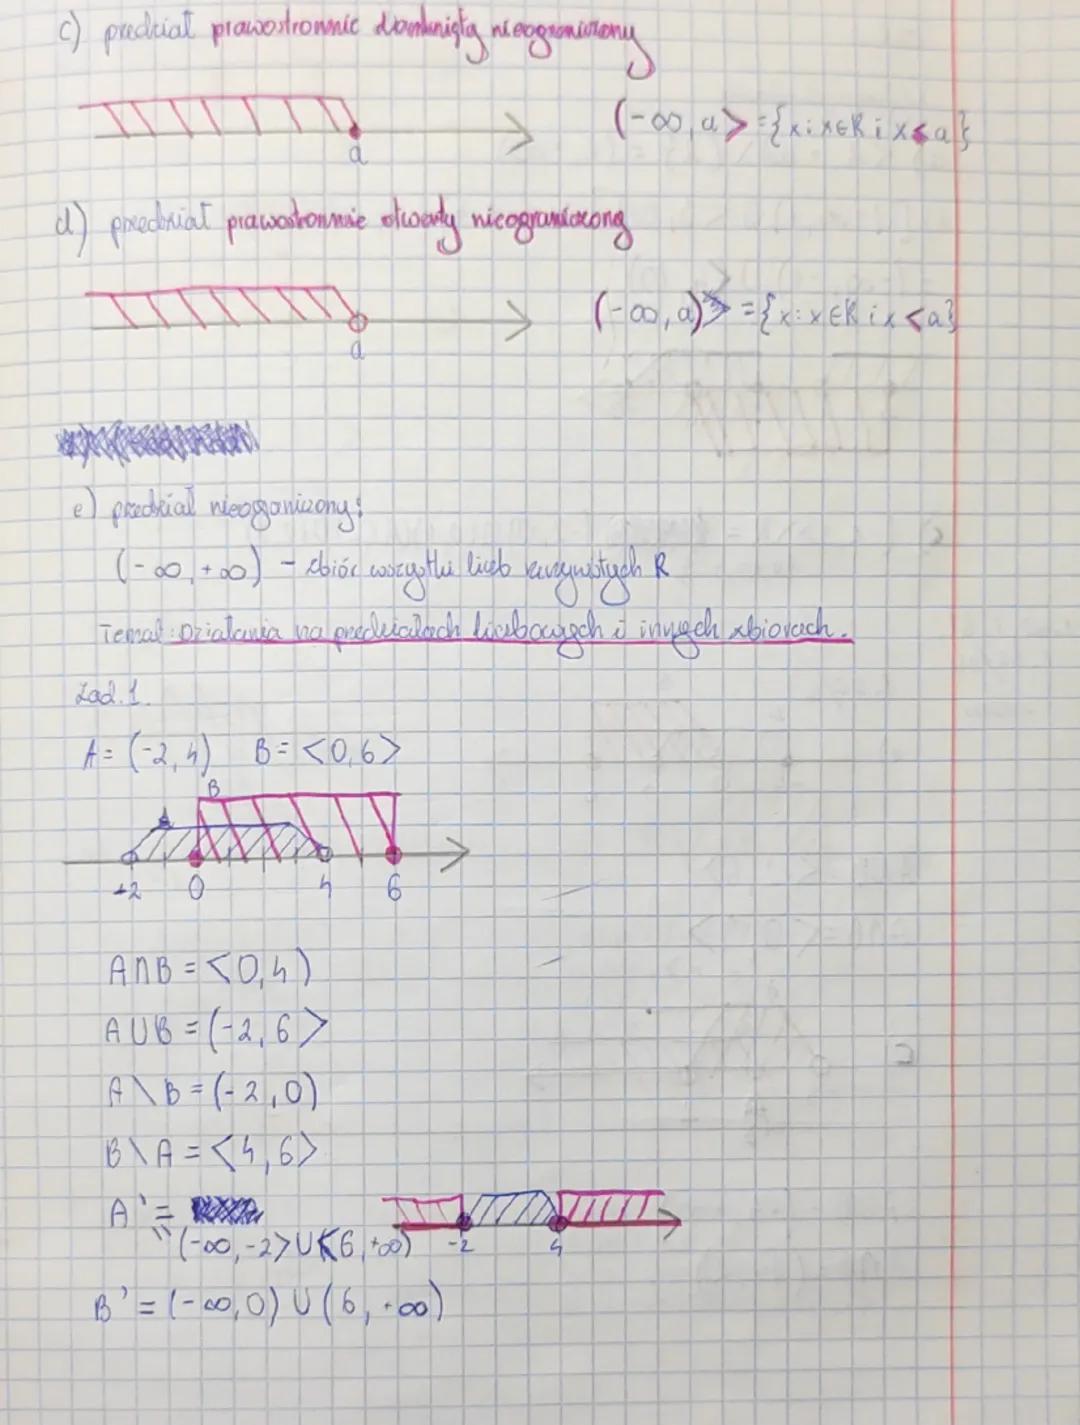 c) przedział prawostronnie domknięty nieograniczony
(-∞, a> = {x: x∈R i x≤a}
a
d) przedział prawostronnie otwarty nieograniczony
(-∞, a) = {x: x∈R i x<a}
a
e) przedział nieograniczony:
(-∞, +∞) - zbiór wszystki liczb rzeczywistych R
Temat: Działania na przedziałach liczbowych i innych zbiorach.
Zad. 1.
A = (-2, 4) B = <0, 6>
B
A
-2 0 4 6
A∩B = <0, 4)
A∪B = (-2, 6>
A\B = (-2, 0)
B\A = <4, 6>
A' =
(-∞, -2> ∪ <6, +∞) -2 4
B' = (-∞, 0) ∪ (6, +∞)